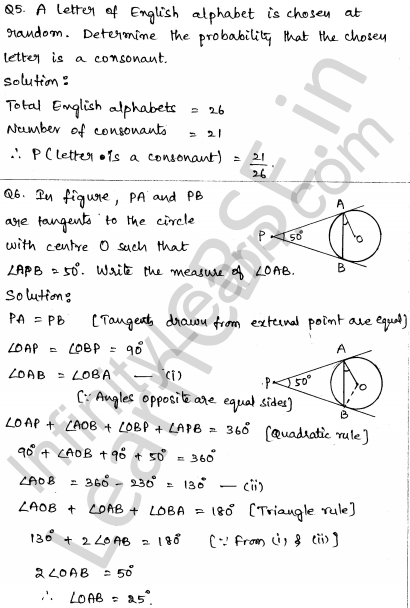 Q5. A letter of English alphabet is chosen at
random. Determine the probability that the chosen
letter is a consonant.
Solution:
Total English alphabets = 26
Number of consonants = 21
∴ P(letter is a consonant) = 21/26.
Q6. In figure, PA and PB
are tangents to the circle
with centre O such that
∠APB = 50°. Write the measure of ∠OAB.
A
P 50° O
B
Solution:
PA = PB [Tangents drawn from external point are equal]
∠OAP = ∠OBP = 90°
∠OAB = ∠OBA — (i)
[∵ Angles opposite are equal sides]
A
P 50° O
B
∠OAP + ∠AOB + ∠OBP + ∠APB = 360° [Quadratic rule]
90° + ∠AOB + 90° + 50° = 360°
∠AOB = 360° - 230° = 130° — (ii)
∠AOB + ∠OAB + ∠OBA = 180° [Triangle rule]
130° + 2∠OAB = 180° [∵ From (i) & (ii)]
2∠OAB = 50°
∴ ∠OAB = 25°.
Infinity
LearnCBSE.in
Learn.com